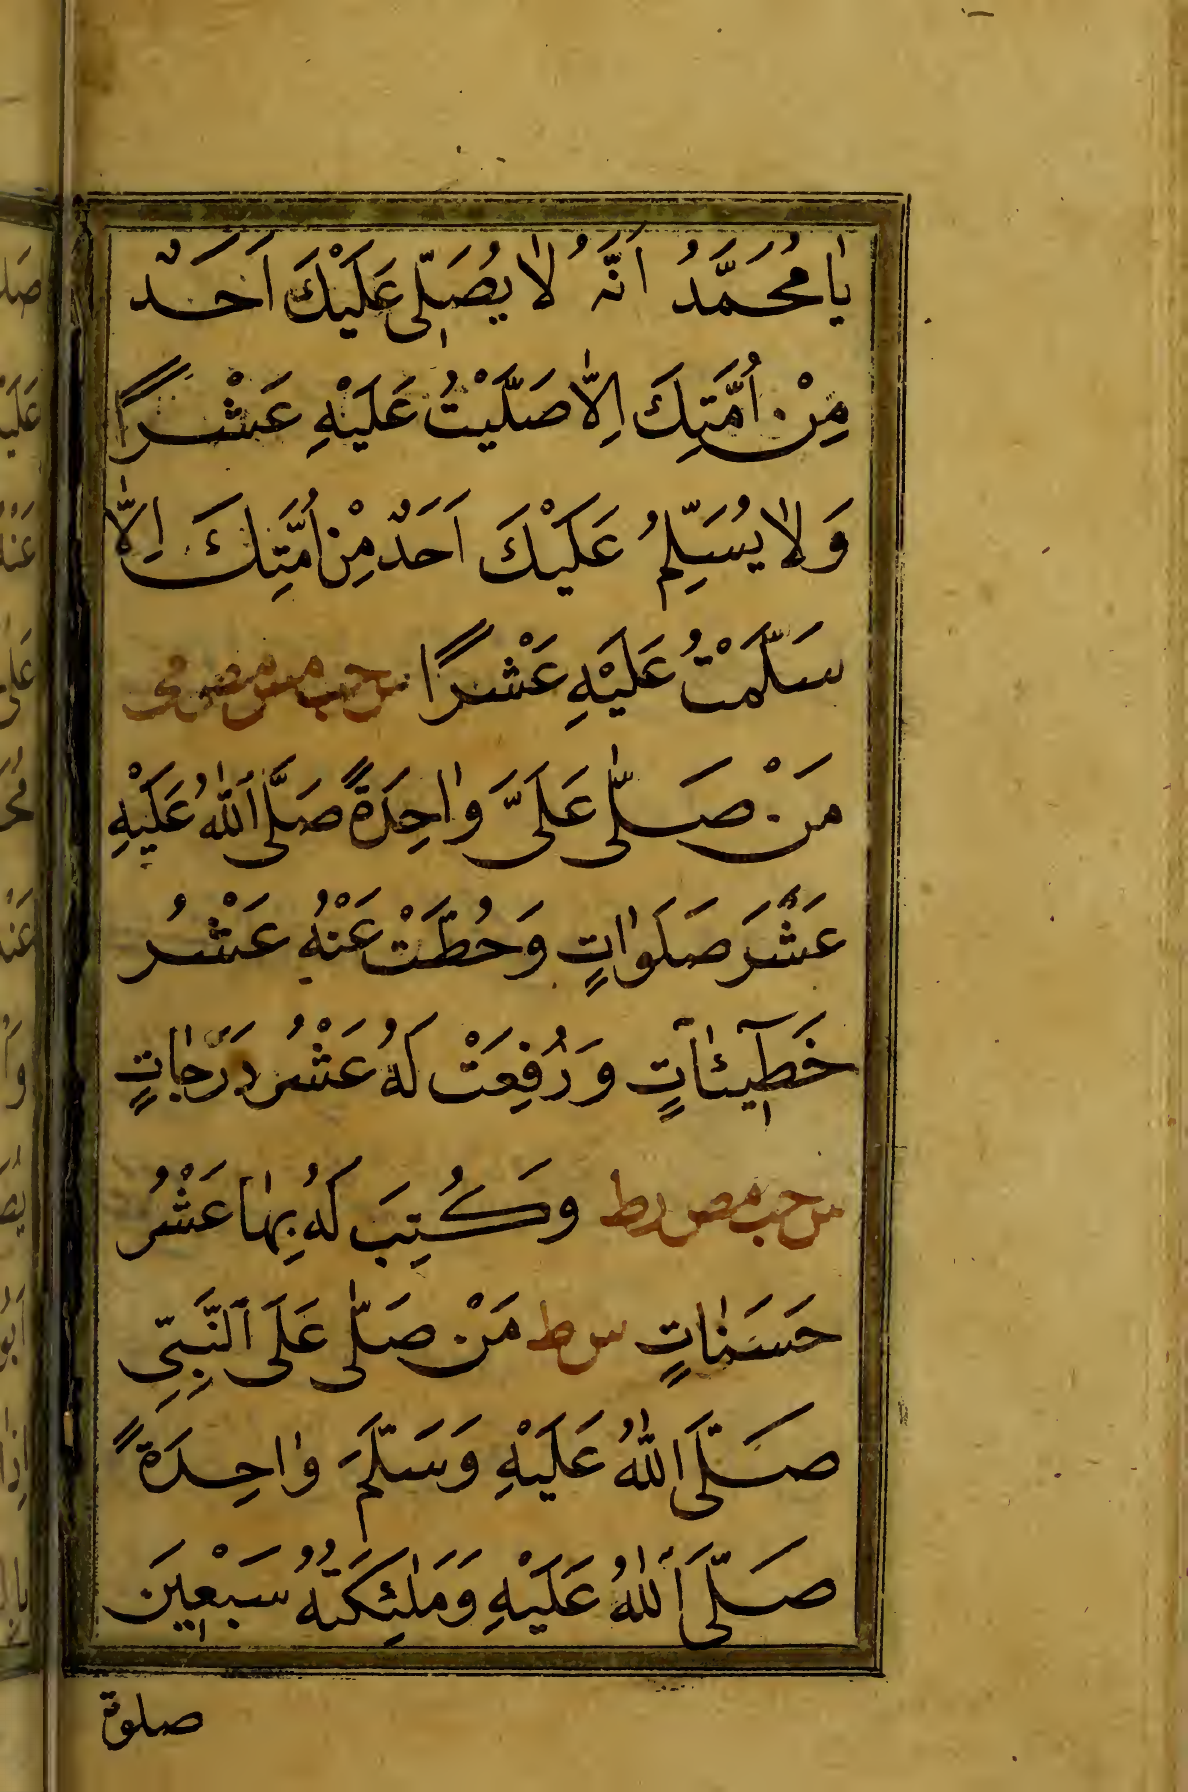 يٰا مُحَمَّدُ اَنَّهُ لٰا يُصَلّٖى عَلَيْكَ اَحَدٌ
مِنْ اُمَّتِكَ اِلّٰا صَلَّيْتُ عَلَيْهِ عَشْرًا
وَلٰا يُسَلِّمُ عَلَيْكَ اَحَدٌ مِنْ اُمَّتِكَ اِلّٰا
سَلَّمْتُ عَلَيْهِ عَشْرًا س حب مس مص مى
مَنْ صَلّٰى عَلَىَّ وٰاحِدَةً صَلَّى اللّٰهُ عَلَيْهِ
عَشْرَ صَلَوٰاتٍ وَحُطَّتْ عَنْهُ عَشْرُ
خَطٖٓيـٰٔاتٍ وَرُفِعَتْ لَهُ عَشْرُ دَرَجٰاتٍ
س حب مص ر ط وَكُتِبَ لَهُ بِهٰا عَشْرُ
حَسَنٰاتٍ س ط مَنْ صَلّٰى عَلَى النَّبِىِّ
صَلَّى اللّٰهُ عَلَيْهِ وَسَلَّمَ وٰاحِدَةً
صَلَّى اللّٰهُ عَلَيْهِ وَمَلٰئِكَتُهُ سَبْعٖينَ
صلوة